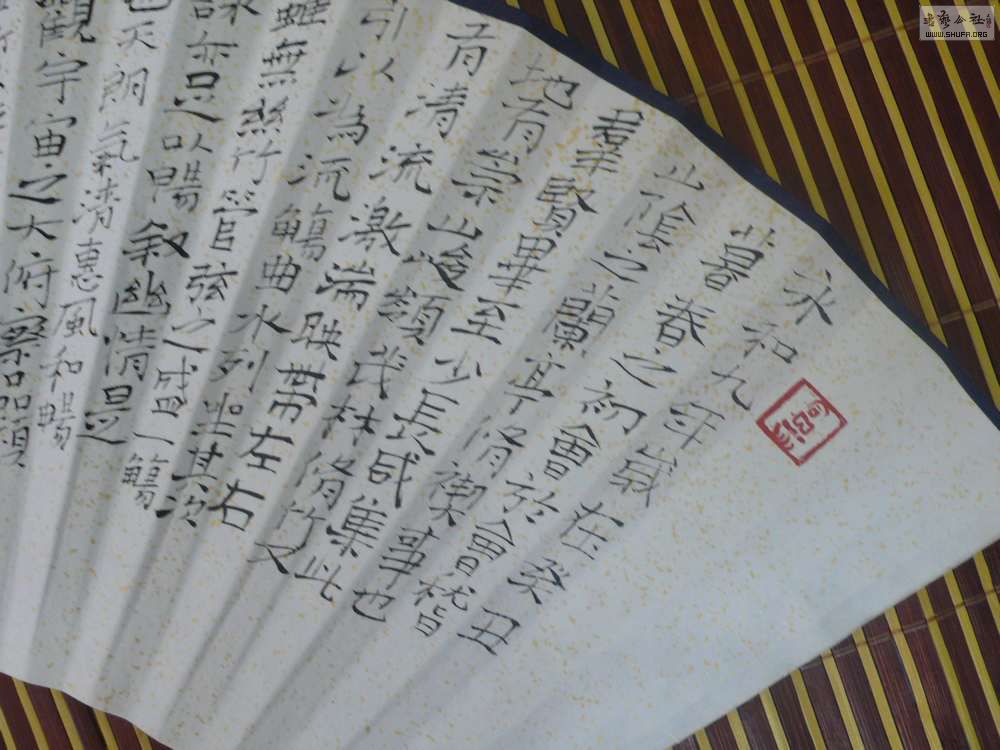 永和九年歲在癸丑
暮春之初會於會稽
山陰之蘭亭脩禊事也
羣賢畢至少長咸集此
地有崇山峻領茂林脩竹又
有清流激湍暎帶左右
引以為流觴曲水列坐其次
雖無絲竹管弦之盛一觴
詠亦足以暢敘幽情是
也天朗氣清惠風和暢
觀宇宙之大俯察品類
書藝公社
WWW.SHUFA.ORG